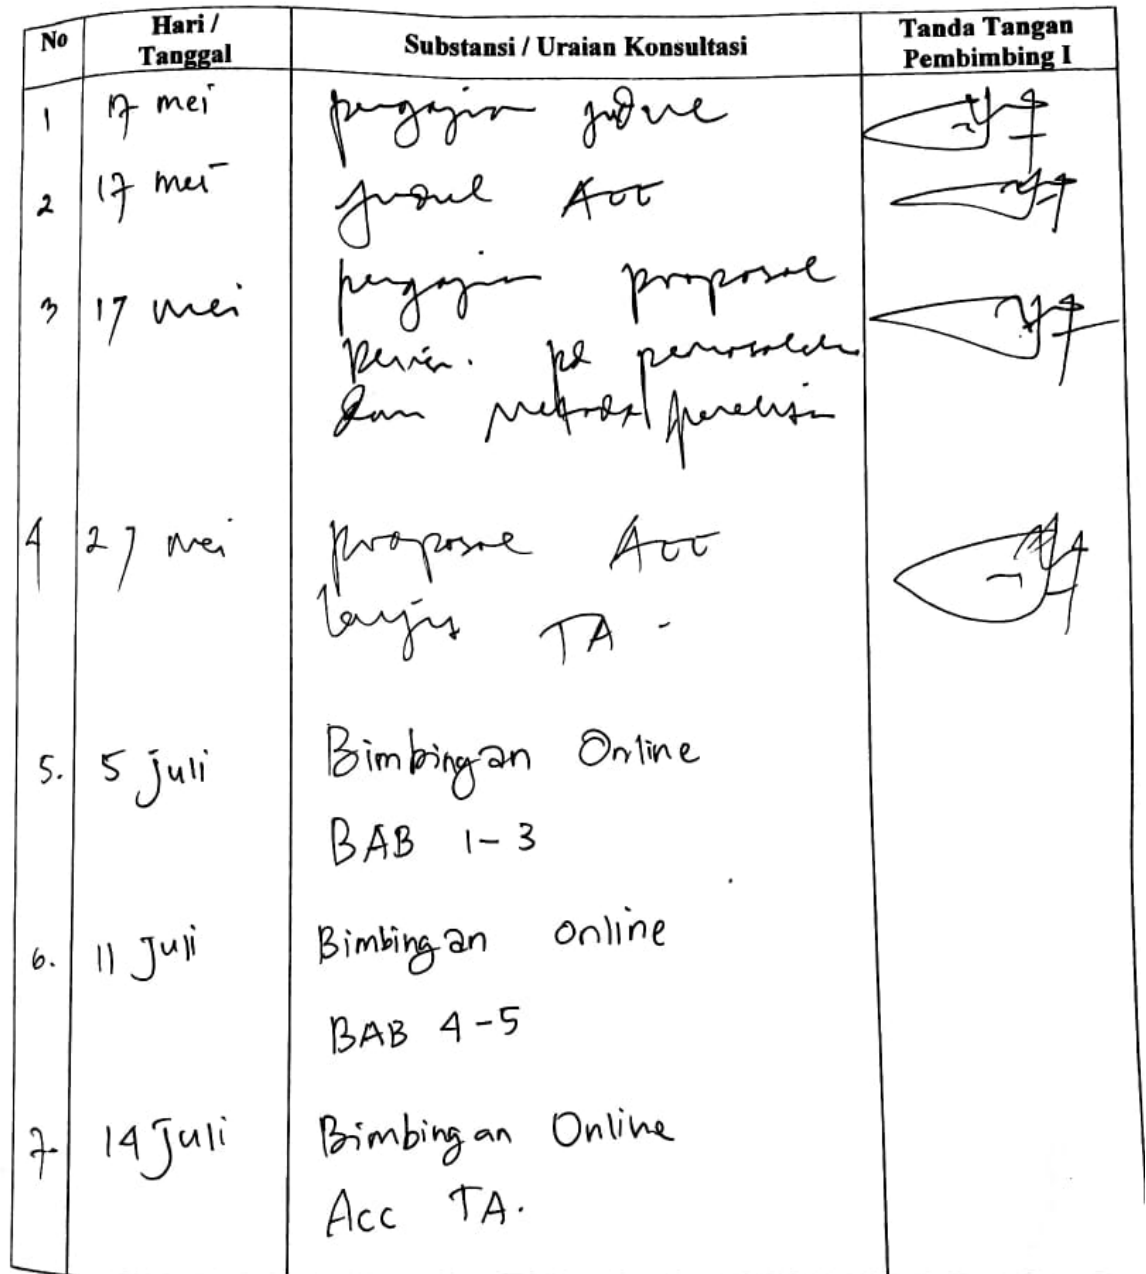 No Hari / Tanggal Substansi / Uraian Konsultasi Tanda Tangan Pembimbing I
1 17 mei pengajian judul
2 17 mei judul Acc
3 17 mei pengajian proposal
pd
dan
4 27 mei proposal Acc
lanjut TA
5. 5 Juli Bimbingan Online
BAB 1-3
6. 11 Juli Bimbingan online
BAB 4-5
7. 14 Juli Bimbingan Online
Acc TA.